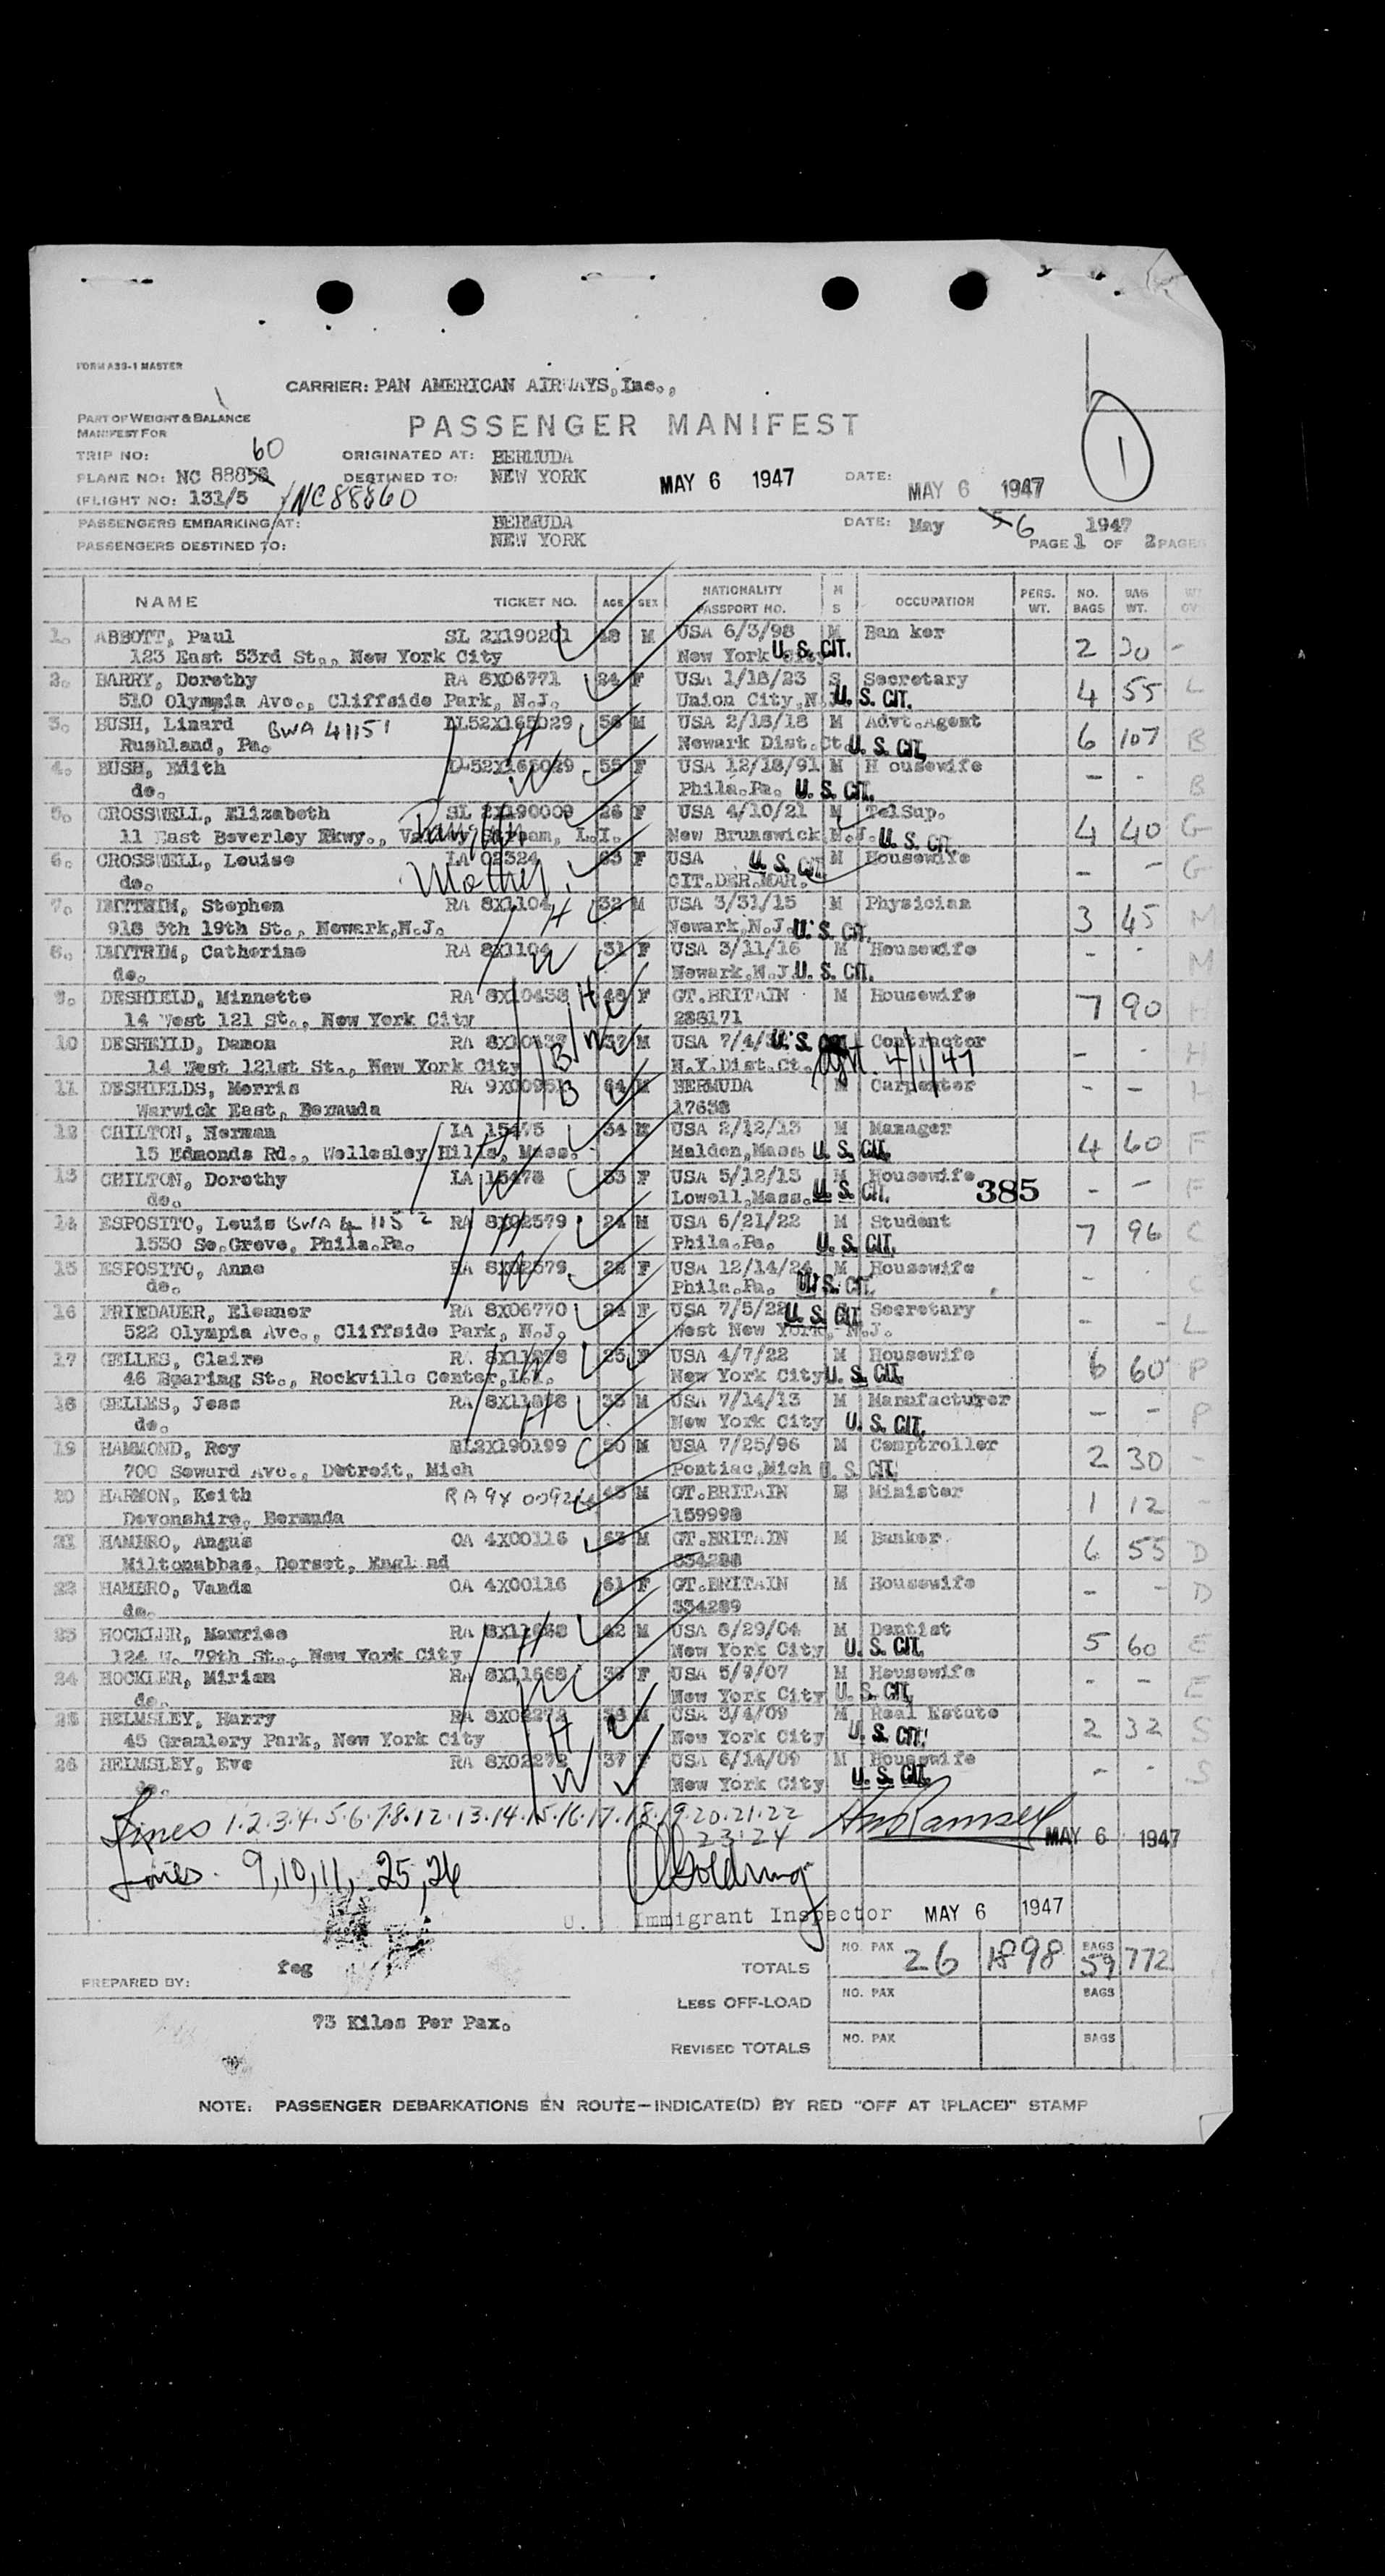 FORM A39-1 MASTER
CARRIER: PAN AMERICAN AIRWAYS, Inc.,
PART OF WEIGHT & BALANCE
MANIFEST FOR
PASSENGER MANIFEST
1
TRIP NO: 60 ORIGINATED AT: BERMUDA
PLANE NO: NC 88858 DESTINED TO: NEW YORK MAY 6 1947 DATE: MAY 6 1947
(FLIGHT NO: 131/5 NC88860
PASSENGERS EMBARKING AT: BERMUDA DATE: May 5 6 1947
PASSENGERS DESTINED TO: NEW YORK PAGE 1 OF 2 PAGES
NAME TICKET NO. AGE SEX NATIONALITY PASSPORT NO. M S OCCUPATION PERS. WT. NO. BAGS BAG WT.
1. ABBOTT, Paul SL 2X190201 48 M USA 6/3/98 M Ban ker 2 30 -
123 East 53rd St., New York City New York City U. S. CIT.
2. BARRY, Dorothy RA 8X06771 24 F USA 1/18/23 S Secretary 4 55 L
510 Olympia Ave., Cliffside Park, N.J. Union City, N.J. U. S. CIT.
3. BUSH, Linard BWA 41151 DL52X165029 56 M USA 2/18/18 M Advt.Agent 6 107 B
Rushland, Pa. H Newark Dist.Ct. U. S. CIT.
4. BUSH, Edith DL52X165029 55 F USA 12/18/91 M H ousewife - - B
do. W Phila.Pa. U. S. CIT.
5. CROSSWELL, Elizabeth SL 2X190009 26 F USA 4/10/21 M TelSup. 4 40 G
11 East Beverley Pkwy., Valley Stream, L.I. Daughter New Brunswick N.J. U. S. CIT.
6. CROSSWELL, Louise LA 02324 63 F USA U. S. CIT. M Housewife - - G
do. Mother CIT.DER.MAR.
7. DMYTRIM, Stephen RA 8X1104 32 M USA 3/31/15 M Physician 3 45 M
918 5th 19th St., Newark,N.J. H Newark,N.J. U. S. CIT.
8. DMYTRIM, Catherine RA 8X1104 31 F USA 3/11/16 M Housewife - - M
do. W Newark,N.J. U. S. CIT.
9. DESHIELD, Minnette RA 8X10438 H 48 F GT.BRITAIN M Housewife 7 90 H
14 West 121 St., New York City 288171
10 DESHEILD, Damon RA W 57 M USA U. S. CIT. Contractor - - H
14 West 121st St., New York City B N.Y.Dist.Ct. 4/1/47
11 DESHIELDS, Morris RA B 64 M BERMUDA M Carpenter - - H
Warwick East, Bermuda 17638
12 CHILTON, Herman LA 15475 34 M USA 2/12/13 M Manager 4 60 F
15 Edmonds Rd., Wellesley Hills, Mass. H Malden,Mass. U. S. CIT.
13 CHILTON, Dorothy LA 15475 33 F USA 5/12/13 M Housewife 385 - - F
do. W Lowell,Mass. U. S. CIT.
14 ESPOSITO, Louis BWA 4 1152 RA 8X02579 24 M USA 6/21/22 M Student 7 96 C
1530 So.Grove, Phila.Pa. H Phila.Pa. U. S. CIT.
15 ESPOSITO, Anne RA 8X02579 22 F USA 12/14/24 M Housewife - - C
do. W Phila.Pa. U. S. CIT.
16 FRIEDAUER, Eleanor RA 8X06770 24 F USA 7/5/22 U. S. CIT. Secretary - - L
522 Olympia Ave., Cliffside Park, N.J. West New York, N.J.
17 GELLES, Claire RA 8X11878 25 F USA 4/7/22 M Housewife 6 60 P
46 Hearing St., Rockville Center,L.I. W New York City U. S. CIT.
18 GELLES, Jess RA 8X11878 33 M USA 7/14/13 M Manufacturer - - P
do. H New York City U. S. CIT.
19 HAMMOND, Roy SL2X190199 50 M USA 7/25/96 M Comptroller 2 30 -
700 Seward Ave., Detroit, Mich Pontiac,Mich U. S. CIT.
20 HARMON, Keith RA 9X 00926 45 M GT.BRITAIN M Minister 1 12 -
Devonshire, Bermuda 159998
21 HAMBRO, Angus OA 4X00116 63 M GT.BRITAIN M Banker 6 55 D
Miltonabbas, Dorset, Engl nd 334288
22 HAMBRO, Vanda OA 4X00116 61 F GT.BRITAIN M Housewife - - D
do. 334289
23 HOCKLER, Maurice RA 8X11668 42 M USA 8/29/04 M Dentist 5 60 E
124 W. 79th St., New York City H New York City U. S. CIT.
24 HOCKLER, Miriam RA 8X11668 39 F USA 5/9/07 M Housewife - - E
do. W New York City U. S. CIT.
25 HELMSLEY, Harry RA 8X02272 38 M USA 3/4/09 M Real Estate 2 32 S
45 Gramlery Park, New York City H New York City U. S. CIT.
26 HELMSLEY, Eve RA 8X02272 37 F USA 6/14/09 M Housewife - - S
do. W New York City U. S. CIT.
Lines 1.2.3.4.5.6.7.8.12.13.14.15.16.17.18.19.20.21.22
23.24 MAY 6 1947
Lines 9,10,11, 25,26 Goldring
U. Immigrant Inspector MAY 6 1947
TOTALS NO. PAX 26 1898 BAGS 59 772
PREPARED BY: feg
LESS OFF-LOAD NO. PAX BAGS
73 Kilos Per Pax.
REVISED TOTALS NO. PAX BAGS
NOTE: PASSENGER DEBARKATIONS EN ROUTE—INDICATE(D) BY RED "OFF AT (PLACE)" STAMP